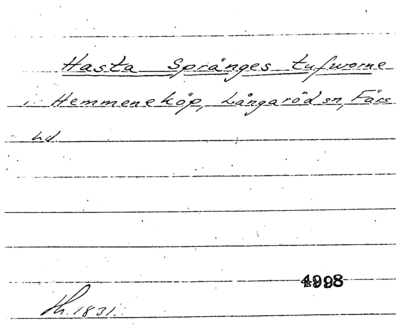 Hasta Språnges tufworne
i Hemmeneköp, Långaröd sn, Färs
hd.
4998
1831.